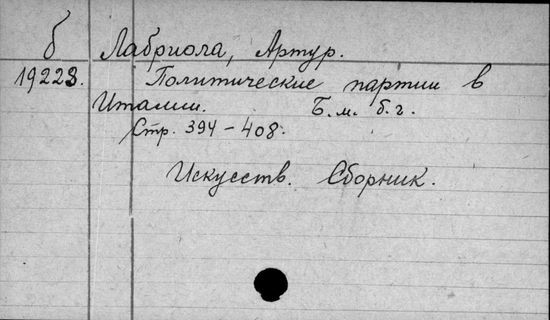 б Лабриола, Артур.
19223. Политические партии в
Италии. Б. м. б. г.
Стр. 394-408.
Искусств. Сборник.